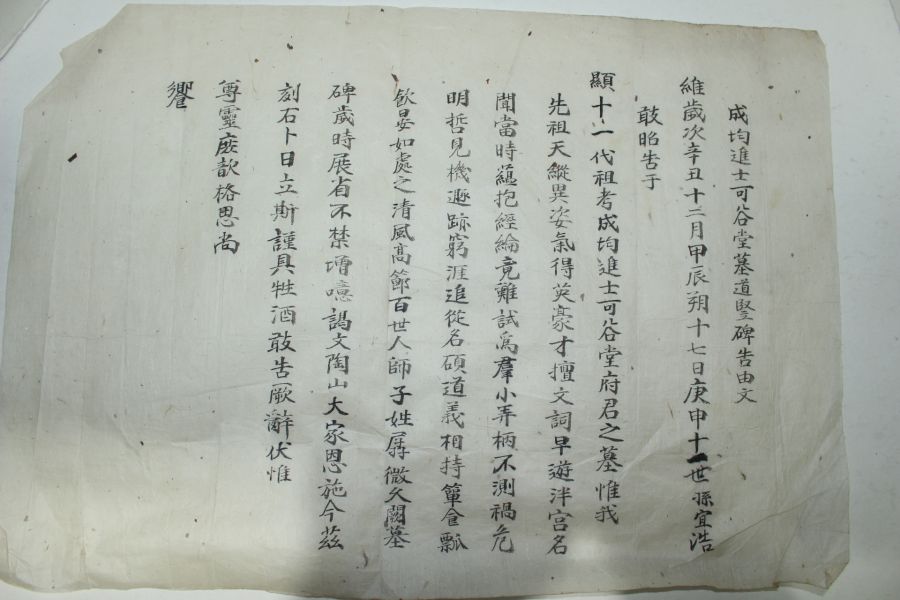 成均進士可谷堂墓道竪碑告由文
維歲次辛丑十二月甲辰朔十七日庚申十一世孫宜浩
敢昭告于
顯十一代祖考成均進士可谷堂府君之墓惟我
先祖天縱異姿氣得英豪才擅文詞早遊泮宮名
聞當時蘊抱經綸竟難試爲羣小弄柄不測禍危
明哲見機遯跡窮涯追從名碩道義相持簞食瓢
飮晏如處之清風高節百世人師子姓孱微久闕墓
碑歲時展省不禁噌噫謁文陶山大家恩施今玆
刻石卜日立斯謹具牲酒敢告厥辭伏惟
尊靈庶歆格思尚
饗